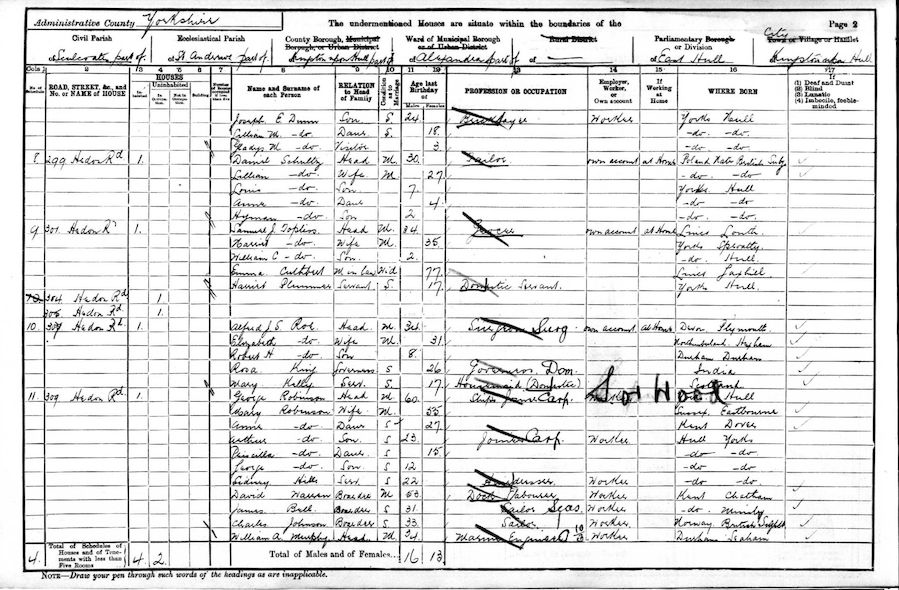 Administrative County Yorkshire
The undermentioned Houses are situate within the boundaries of the
Page 2
Civil Parish
Ecclesiastical Parish
County Borough, Municipal Borough, or Urban District
Ward of Municipal Borough or of Urban District
Rural District
Parliamentary Borough or Division
City
Town or Village or Hamlet
Sculcoates part of
St Andrew's part of
Kingston upon Hull part of
Alexandra part of
—
East Hull
Kingston upon Hull
Cols. 1 2 3 4 5 6 7 8 9 10 11 12 13 14 15 16 17
No. of Schedule
ROAD, STREET, &c., and No. or NAME of HOUSE
HOUSES
Inhabited
Uninhabited
In Occupation
Not in Occupation
Building
Name and Surname of each Person
RELATION to Head of Family
Condition as to Marriage
Age last Birthday of
Males Females
PROFESSION OR OCCUPATION
Employer, Worker, or Own account
If Working at Home
WHERE BORN
If
(1) Deaf and Dumb
(2) Blind
(3) Lunatic
(4) Imbecile, feeble-minded
Joseph E Dunn Son S 24 Bricklayer Worker Yorks Hull
Lillian M -do- Daur S 18 -do- -do-
Gladys M -do- Visitor 3 -do- -do-
8 299 Hedon Rd 1 Daniel Head M 30 Tailor own account at Home Poland
Lillian -do- Wife M 27 -do- -do-
Louis -do- Son 7 Yorks Hull
Annie -do- Daur 4 -do- -do-
Hyman -do- Son 2 -do- -do-
9 301 Hedon Rd 1 Samuel J. Head M 34 Grocer own account at Home Lincs Louth
Harriet -do- Wife M 35 Yorks
William C -do- Son 2 -do- Hull
Emma Cuthbert M in Law Wid 77 Lincs
Harriet Plummer Servant S 17 Domestic Servant Yorks Hull
10 304 Hedon Rd 1
305 Hedon Rd 1
10 Hedon Rd 1 Alfred J. S. Roe Head M 34 Surgeon Surg own account at Home Devon Plymouth
Elizabeth -do- Wife M 31 Northumberland Hexham
Robert H -do- Son 8 Durham Durham
Rosa King Governess S 26 Governess Dom India
Mary Kelly Serv S 17 Housemaid (Domestic) Scotland
11 309 Hedon Rd 1 George Robinson Head M 60 Ships Joiner Carp. Hull
Mary Robinson Wife M 55 Sussex Eastbourne
Annie -do- Daur S 27 Kent Dover
Arthur -do- Son S 23 Joiner Carp. Worker Hull Yorks
Priscilla -do- Daur S 15 -do- -do-
George -do- Son S 12 -do- -do-
Sidney Hill Serv S 22 Worker -do- -do-
David Boarder M 53 Dock Labourer Worker Kent Chatham
James Bell Boarder S 31 Sailor Seas Worker -do-
Charles Johnson Boarder S 33 Sailor Worker Norway British
William A. Murphy Head M 34 Marine Engineer Worker Durham Seaham
4 Total of Schedules of Houses and of Tenements with less than Five Rooms 4 2
Total of Males and of Females... 16 13
NOTE—Draw your pen through such words of the headings as are inapplicable.